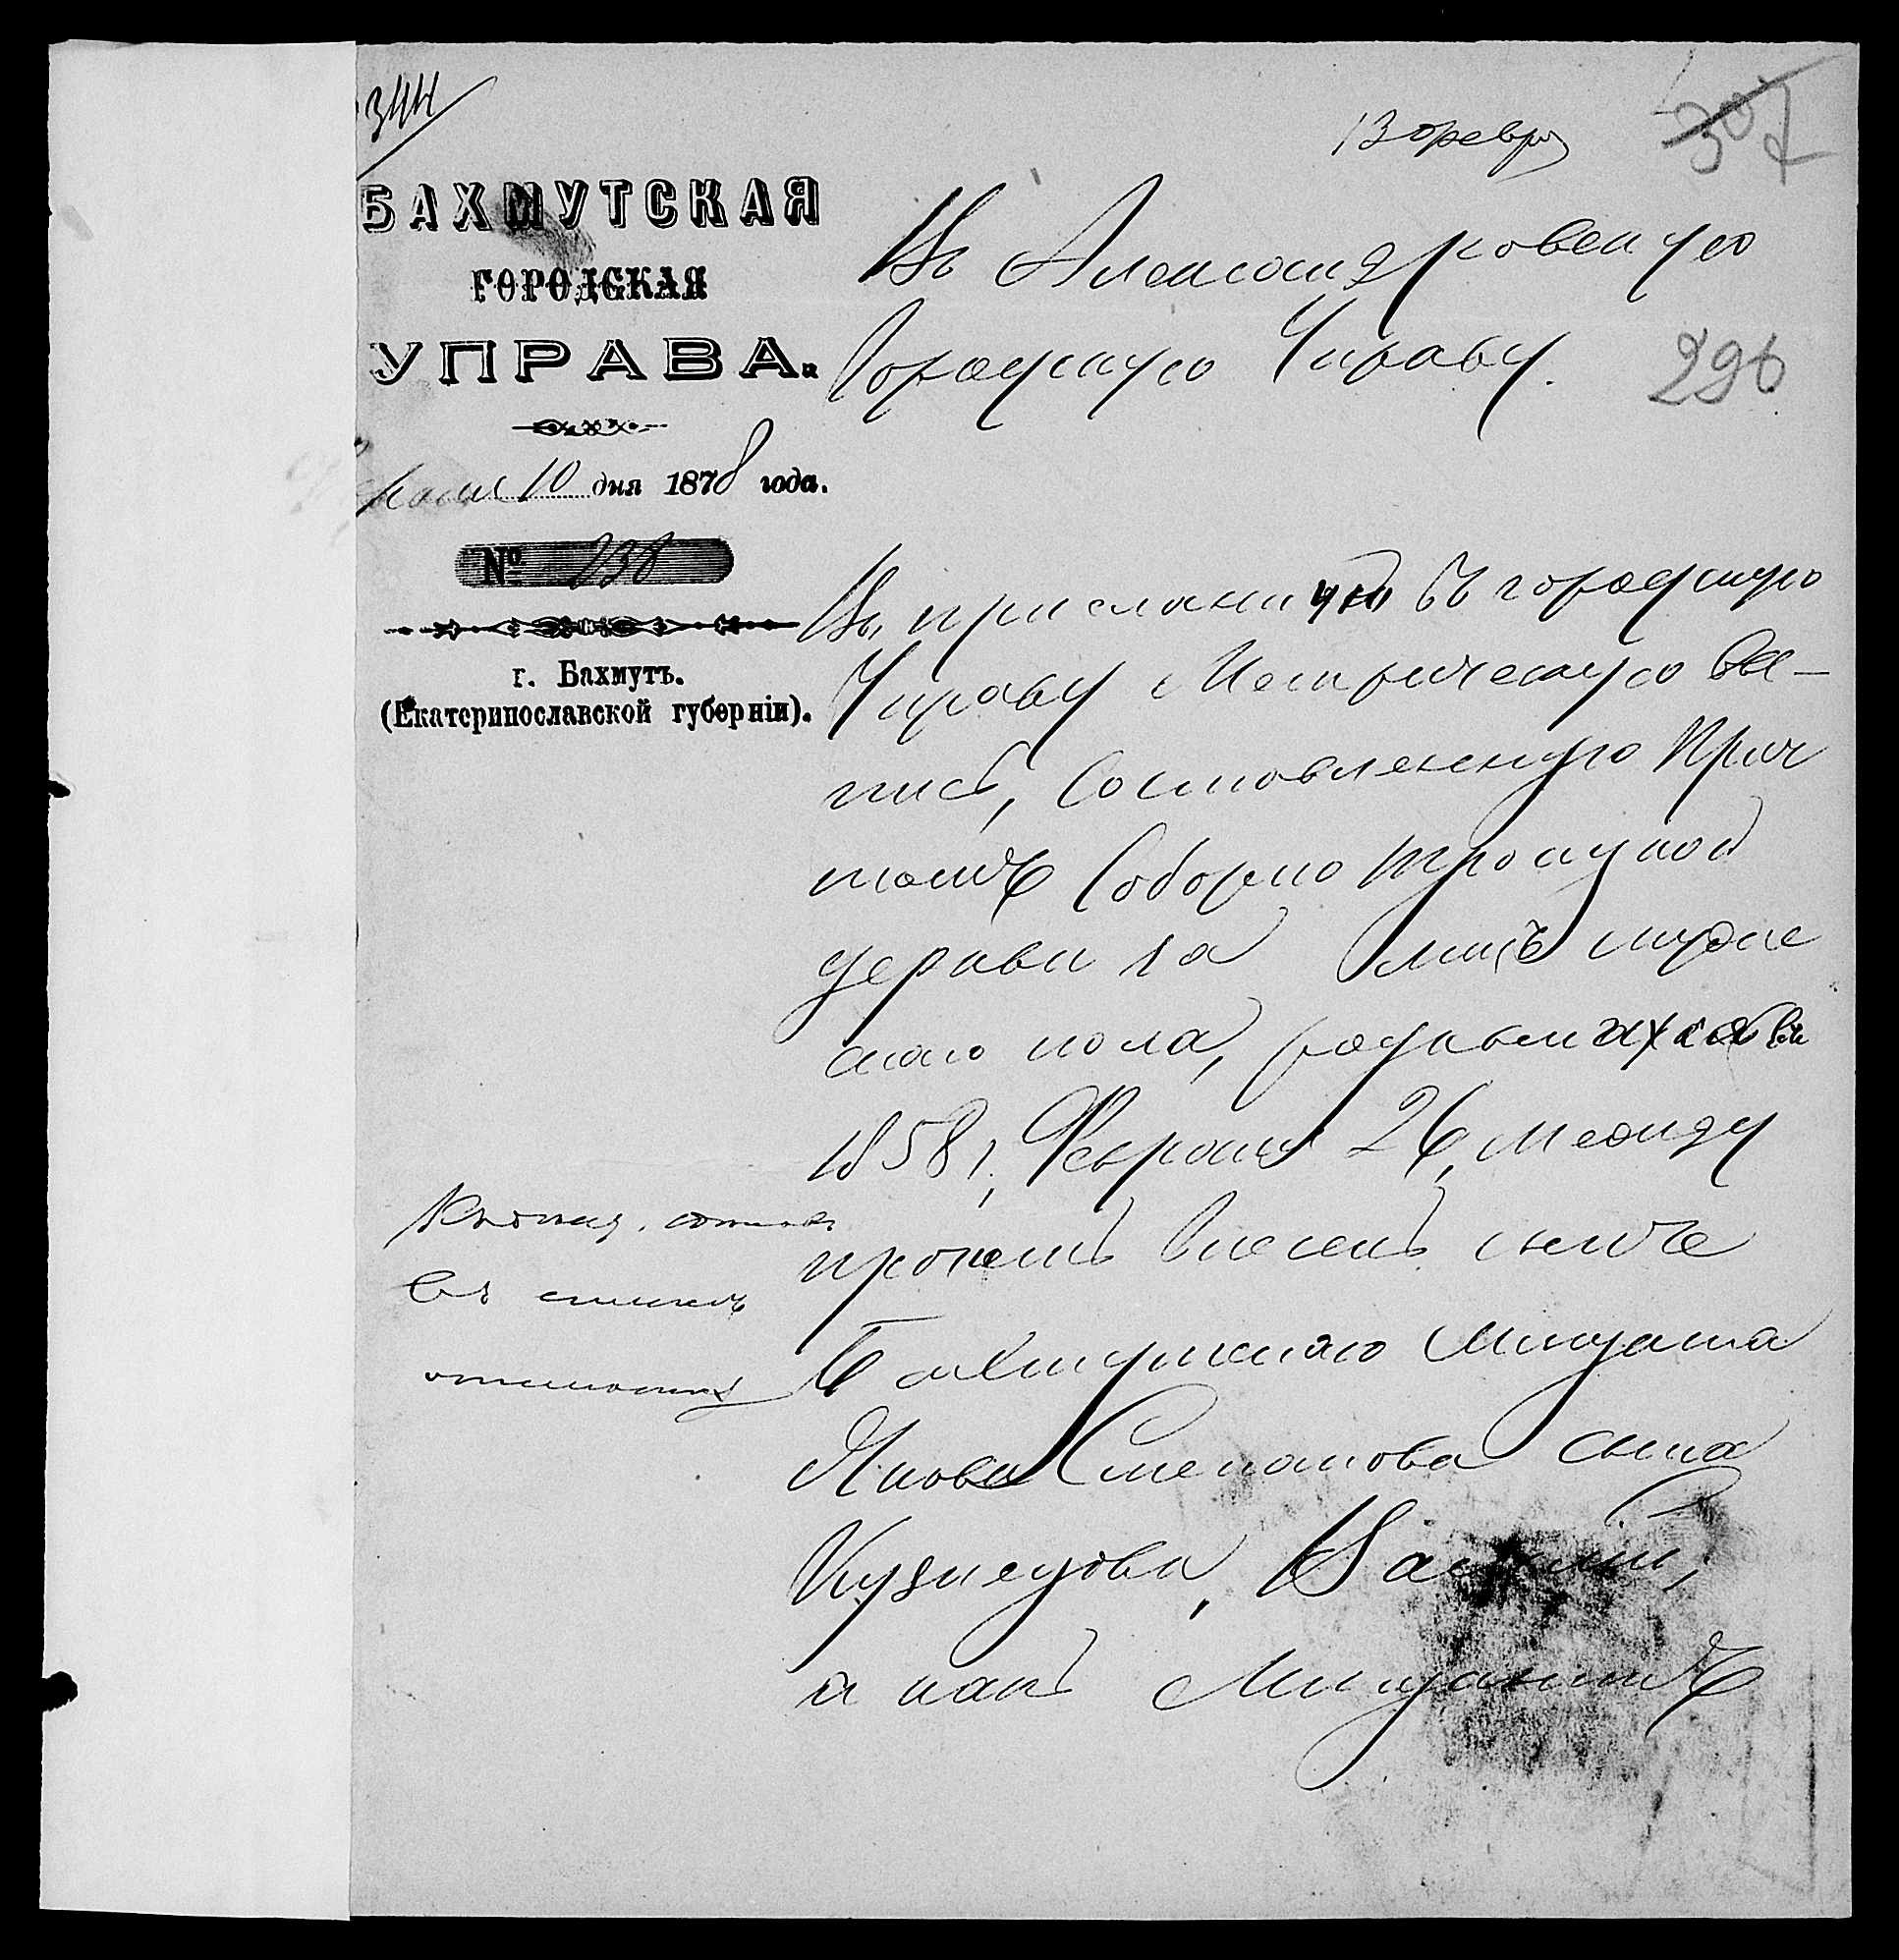 344
13 февр
307
БАХМУТСКАЯ
ГОРОДСКАЯ
УПРАВА.
10 дня 1878 года.
№ 238
г. Бахмутъ.
(Екатеринославской губерніи).
Въ Александровскую
Городскую Управу.
296
Въ присланную въ городскую
Управу Метрическую вы-
пись, Составленную Прич
томъ Соборно Троицкой
церкви за лицъ мужес
каго пола, родившихся въ
1858 г, Февраля 26, между
прочимъ внесенъ сынъ
Бахмутскаго Мещанина
Якова Степанова сына
Кузнецова, Василій,
а какъ Мещанинъ
въ списокъ